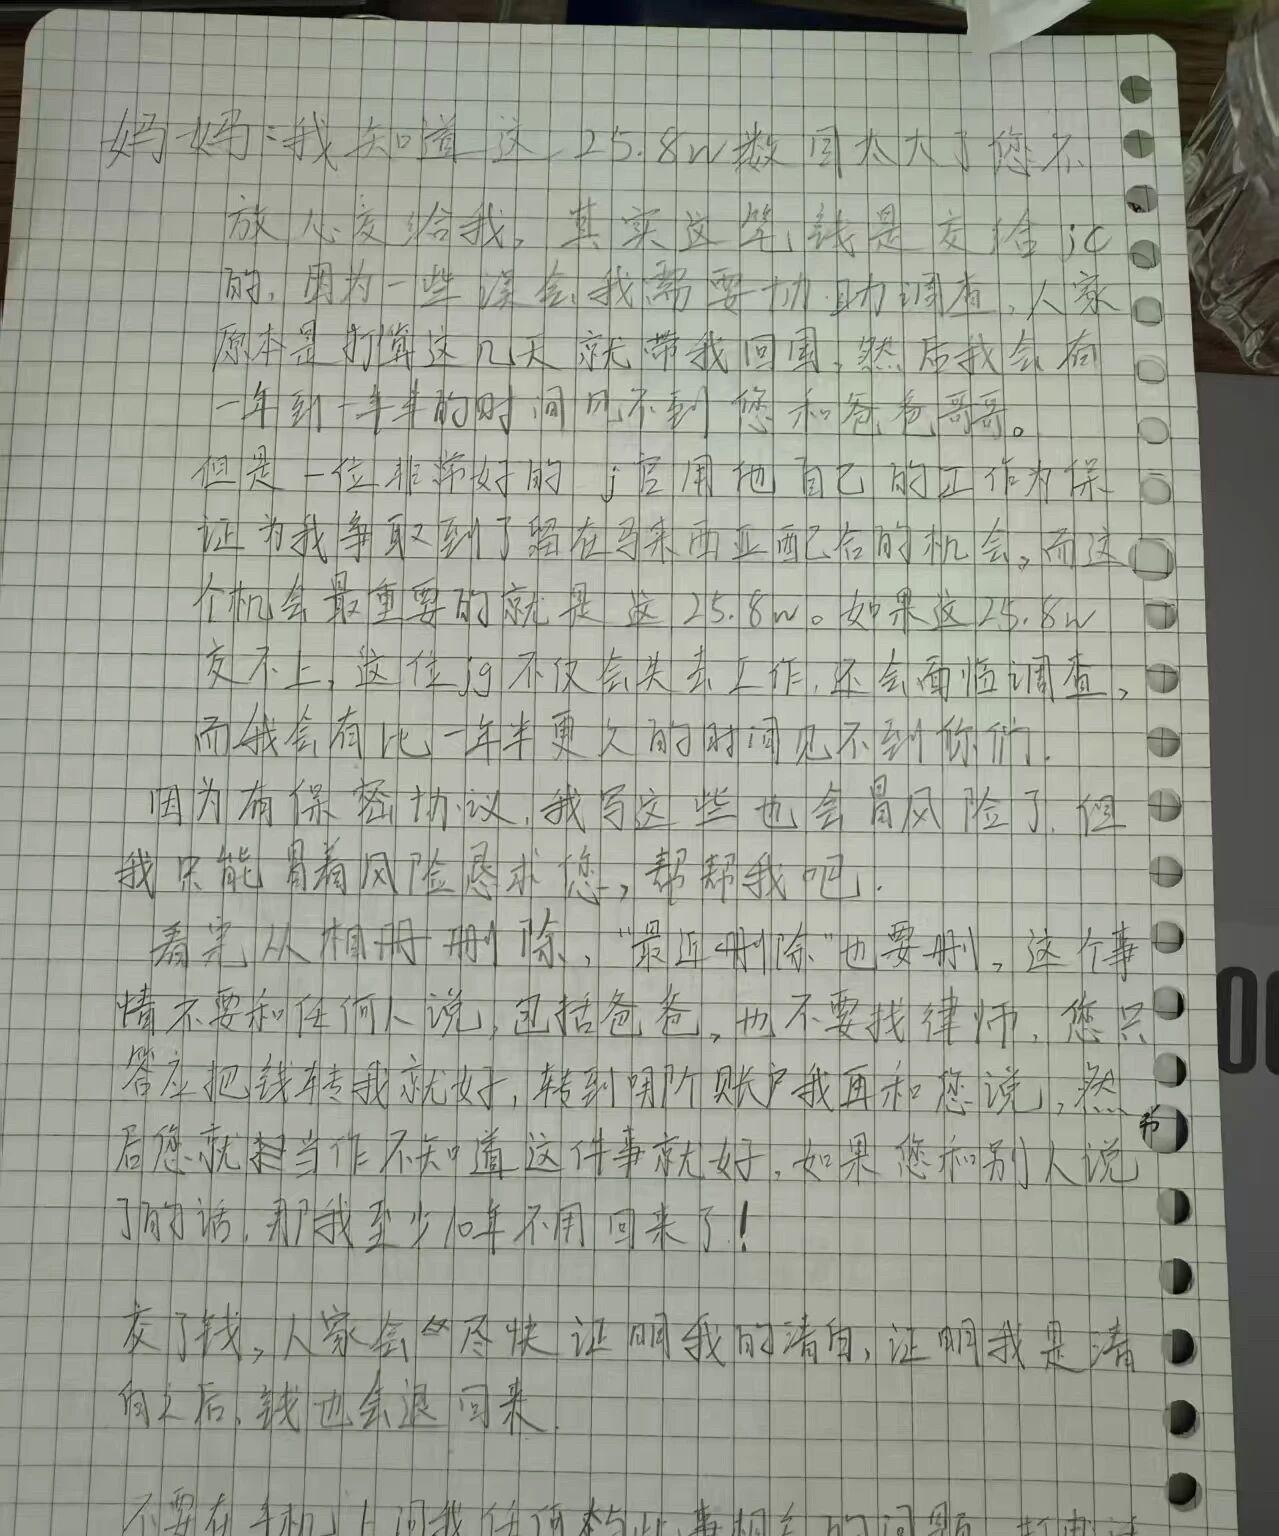 妈妈：我知道这25.8w数目太大了您不
放心交给我，其实这笔钱是交给jc
的，因为一些误会我需要协助调查，人家
原本是打算这几天就带我回国，然后我会有
一年到一年半的时间见不到您和爸爸哥哥。
但是一位非常好的j官用他自己的工作为保
证为我争取到了留在马来西亚配合的机会，而这
个机会最重要的就是这25.8w。如果这25.8w
交不上，这位jg不仅会失去工作，还会面临调查，
而我会有比一年半更久的时间见不到你们.
因为有保密协议，我写这些也会冒风险了，但
我只能冒着风险恳求您，帮帮我吧.
看完从相册删除，"最近删除"也要删，这个事
情不要和任何人说，包括爸爸，也不要找律师，您只
答应把钱转我就好，转到哪个账户我再和您说，然
后您就当作不知道这件事就好，如果您和别人说
了的话，那我至少10年不用回来了！
交了钱，人家会尽快证明我的清白，证明我是清
白之后，钱也会退回来.
不要在手机上问我任何与此事相关的问题